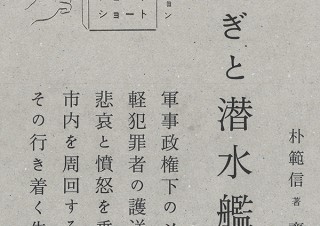 朴範信 著
ぎと潜水艦
軍事政権下の
軽犯罪者の護送
悲哀と憤怒を
市内を周回する
その行き着く
ョン
ショート